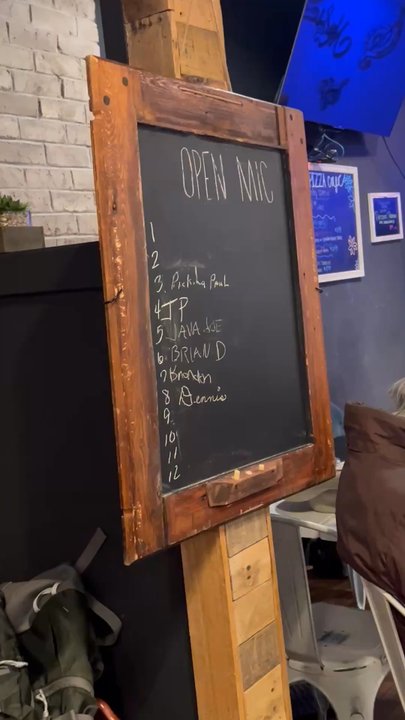 OPEN MIC
1
2
3. Pickin Paul
4 JP
5 JAVA JOE
6. BRIAN D
7 Brandon
8 Dennis
9.
10.
11
12
PIZZA